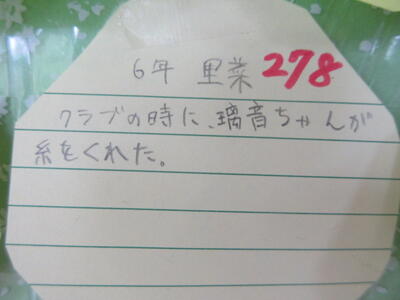 6年 里菜 278
クラブの時に、璃音ちゃんが
糸をくれた。